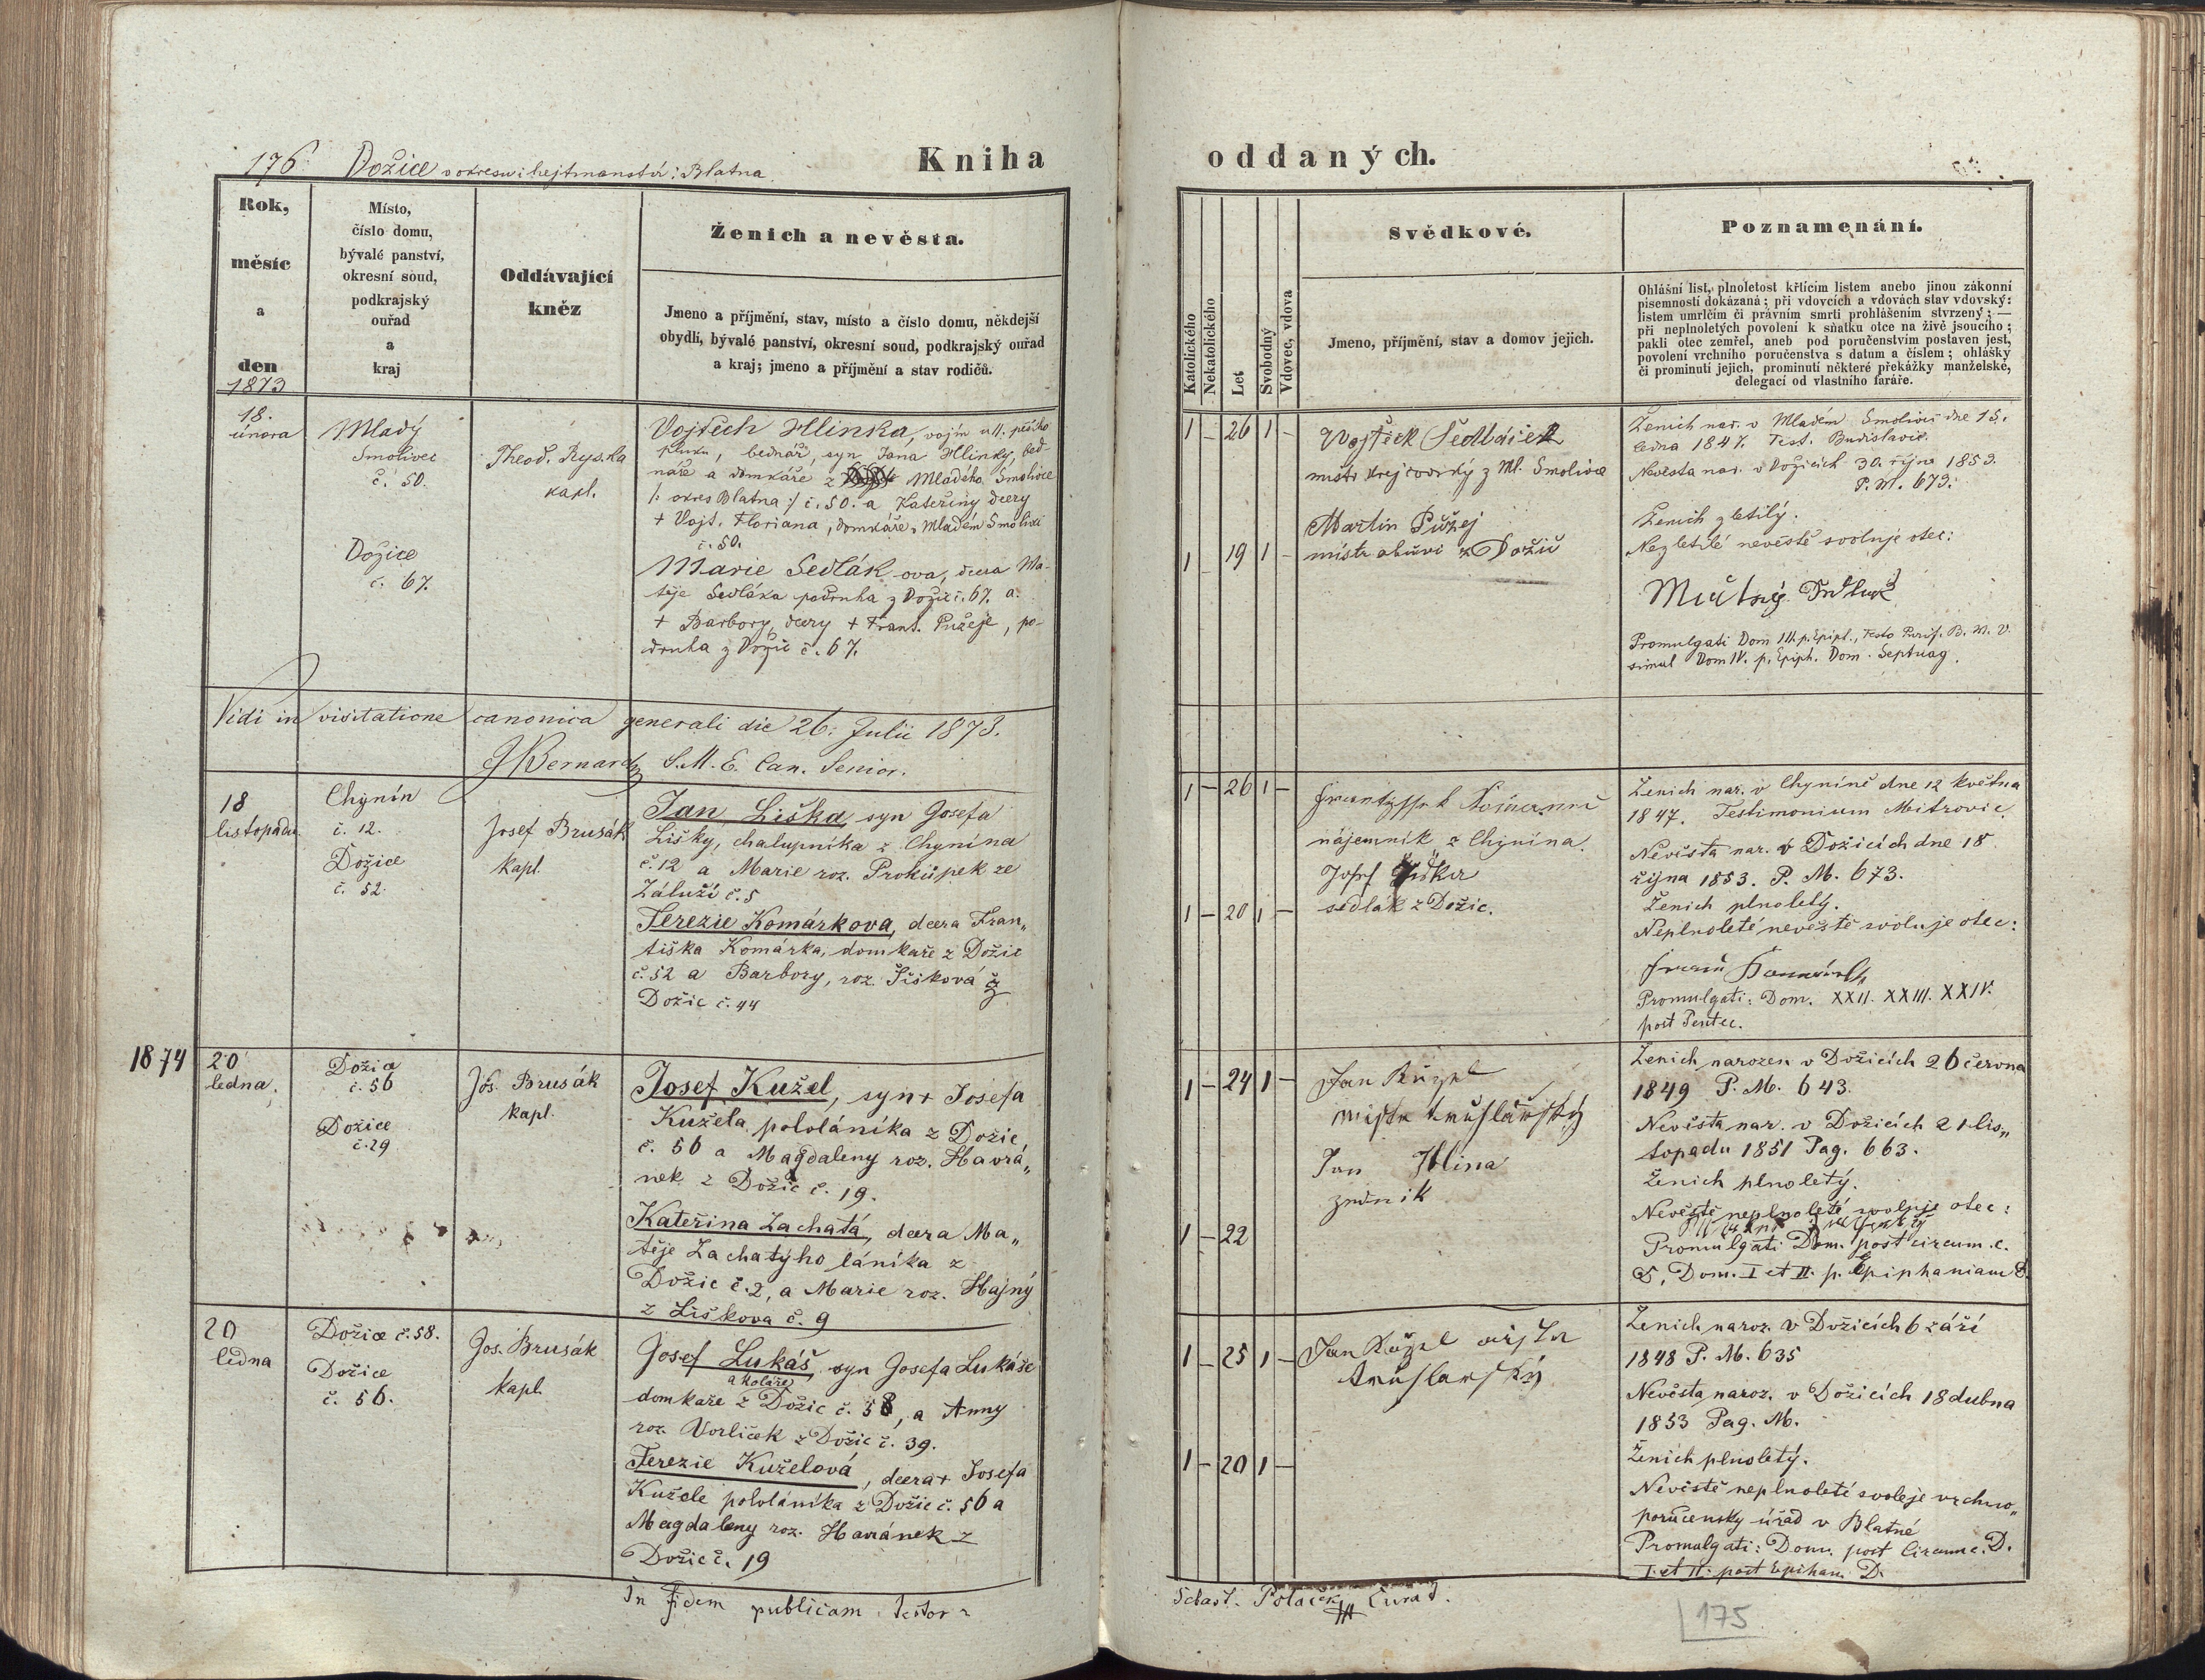 176. Dožice v okresu: hejtmanství: Blatna
Kniha
Rok,
měsíc
a
den
1873
Místo,
číslo domu,
bývalé panství,
okresní soud,
podkrajský
ouřad
a
kraj
Oddávající
kněz
Ženich a nevěsta.
Jmeno a příjmění, stav, místo a číslo domu, někdejší
obydlí, bývalé panství, okresní soud, podkrajský ouřad
a kraj; jmeno a příjmění a stav rodičů.
18.
února
Mladý
Smolivec
č. 50.
Dožice
č. 67.
Theod. Ryska
kapl.
Vojtěch Hlinka, vojín u 11. pěšího
pluku, bednář, syn Jana Hlinky, bed-
náře a domkáře z Mladého Smolivce
/: okres Blatna :/ č. 50. a Kateřiny dcery
+ Vojt. Floriana, domkáře v Mladém Smolivci
č. 50.
Marie Sedlák ova, dcera Ma-
těje Sedláka podruha z Dožic č. 67. a
+ Barbory, dcery + Frant. Pužeje, po-
druha z Dožic č. 67.
Vidi in visitatione canonica generali die 26. Julii 1873.
J Bernard S. M. E. Can. Senior.
18
listopadu
Chynín
č. 12.
Dožice
č. 52.
Josef Brusák
kapl.
Jan Liška syn Josefa
Lišky, chalupníka z Chynína
č. 12 a Marie roz. Prokůpek ze
Záluží č. 5
Terezie Komárkova, dcera Fran„
tiška Komárka, domkaře z Dožic
č. 52 a Barbory, roz. Šišková z
Dožic č. 44
1874
20
ledna.
Dožice
č. 56
Dožice
č. 29
Jos. Brusák
kapl.
Josef Kužel, syn + Josefa
Kužela pololáníka z Dožic,
č. 56 a Magdaleny roz. Havrá„
nek z Dožic č. 19.
Kateřina Zachatá, dcera Ma„
těje Zachatýho láníka z
Dožic č. 2, a Marie roz. Hajný
z Liškova č. 9
20
ledna
Dožice č. 58.
Dožice
č. 56.
Jos. Brusák
kapl.
Josef Lukáš syn Josefa Lukáše
a koláře
domkaře z Dožic č. 58, a Anny
roz. Vorlíček z Dožic č. 39.
Terezie Kuželová, dcera + Josefa
Kužele pololáníka z Dožic č. 56 a
Magdaleny roz. Havránek z
Dožic č. 19
In fidem publicam testor
oddaných.
Katolického
Nekatolického
Let
Svobodný
Vdovec, vdova
Svědkové.
Jmeno, příjmění, stav a domov jejich.
Poznamenání.
Ohlášní list, plnoletost křtícím listem anebo jinou zákonní
písemností dokázaná; při vdovcích a vdovách stav vdovský:
listem umrlčím či právním smrti prohlášením stvrzený; —
při neplnoletých povolení k sňatku otce na živě jsoucího;
pakli otec zemřel, aneb pod poručenstvím postaven jest,
povolení vrchního poručenstva s datum a číslem; ohlášky
či prominutí jejich, prominutí některé překážky manželské,
delegací od vlastního faráře.
1 – 26 1 –
Vojtěch Sedláček
mistr krejčovský z Ml. Smolivce
Martin Pužej
1 19 1 –
mistr obuvi z Dožic
Ženich nar. v Mladém Smolivci dne 15.
ledna 1847. Test. Budislavic.
Nevěsta nar. v Dožicích 30. října 1853.
P. M. 673.
Ženich zletilý.
Nezletilé nevěstě svoluje otec:
Promulgati Dom III. p. Epiph., Festo Purif. B. M. V.
simul Dom IV. p. Epiph. Dom. Septuag.
1 – 26 1 –
nájemník z Chynína.
Josef Šiška
1 – 20 1 –
sedlák z Dožic.
Ženich nar. v Chyníně dne 12 května
1847. Testimonium Mitrovic.
Nevěsta nar. v Dožicích dne 18
října 1853. P. M. 673.
Ženich plnoletý.
Neplnoleté nevěstě svoluje otec:
Promulgati: Dom. XXII. XXIII. XXIV.
post Pentec.
1 – 24 1 –
Jan Kužel
mistr truhlářský
Jan Hlina
zedník
1 – 22
Ženich narozen v Dožicích 26 června
1849 P. M. 643.
Nevěsta nar. v Dožicích 21 lis„
topadu 1851 Pag. 663.
Ženich plnoletý.
Nevěstě neplnoleté svoluje otec:
Promulgati Dom. post circum. c.
D. Dom. I et II. p. Epiphaniam D.
1 – 25 1 –
Jan Kužel
truhlarský
1 – 20 1 –
Ženich naroz. v Dožicích 6 září
1848 P. M. 635
Nevěsta naroz. v Dožicích 18 dubna
1853 Pag. M.
Ženich plnoletý.
Nevěstě neplnoleté svoleje vrchno„
poručensky úřad v Blatné
Promulgati: Dom. post Circumc. D.
I. et II. post Epiham. D.
Sebast. Polaček Curat.
175